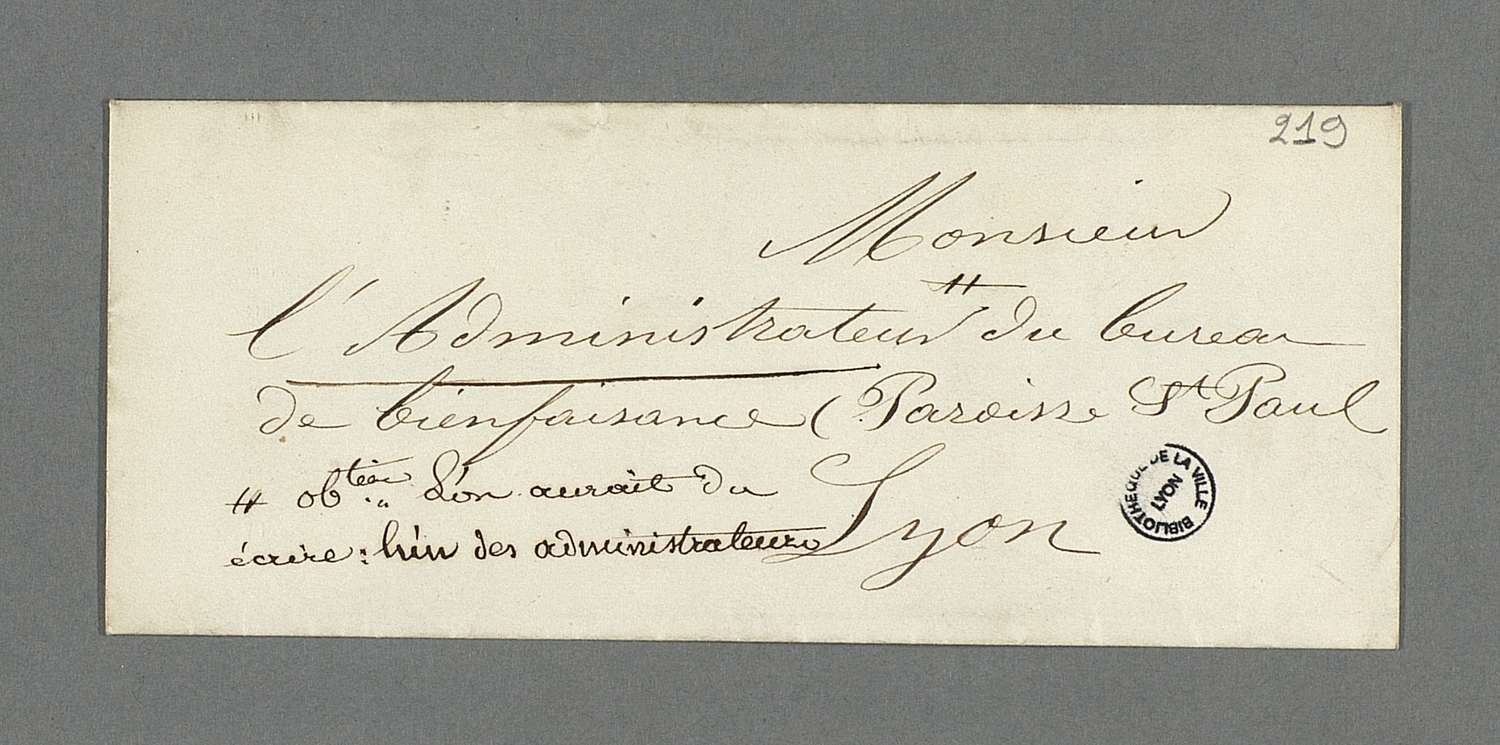 219
Monsieur
#
l'Administrateur du bureau
de bienfaisance (Paroisse St Paul
Lyon
# ob L'on aurait du
écrire: l'un des administrateurs
BIBLIOTHEQUE DE LA VILLE
LYON